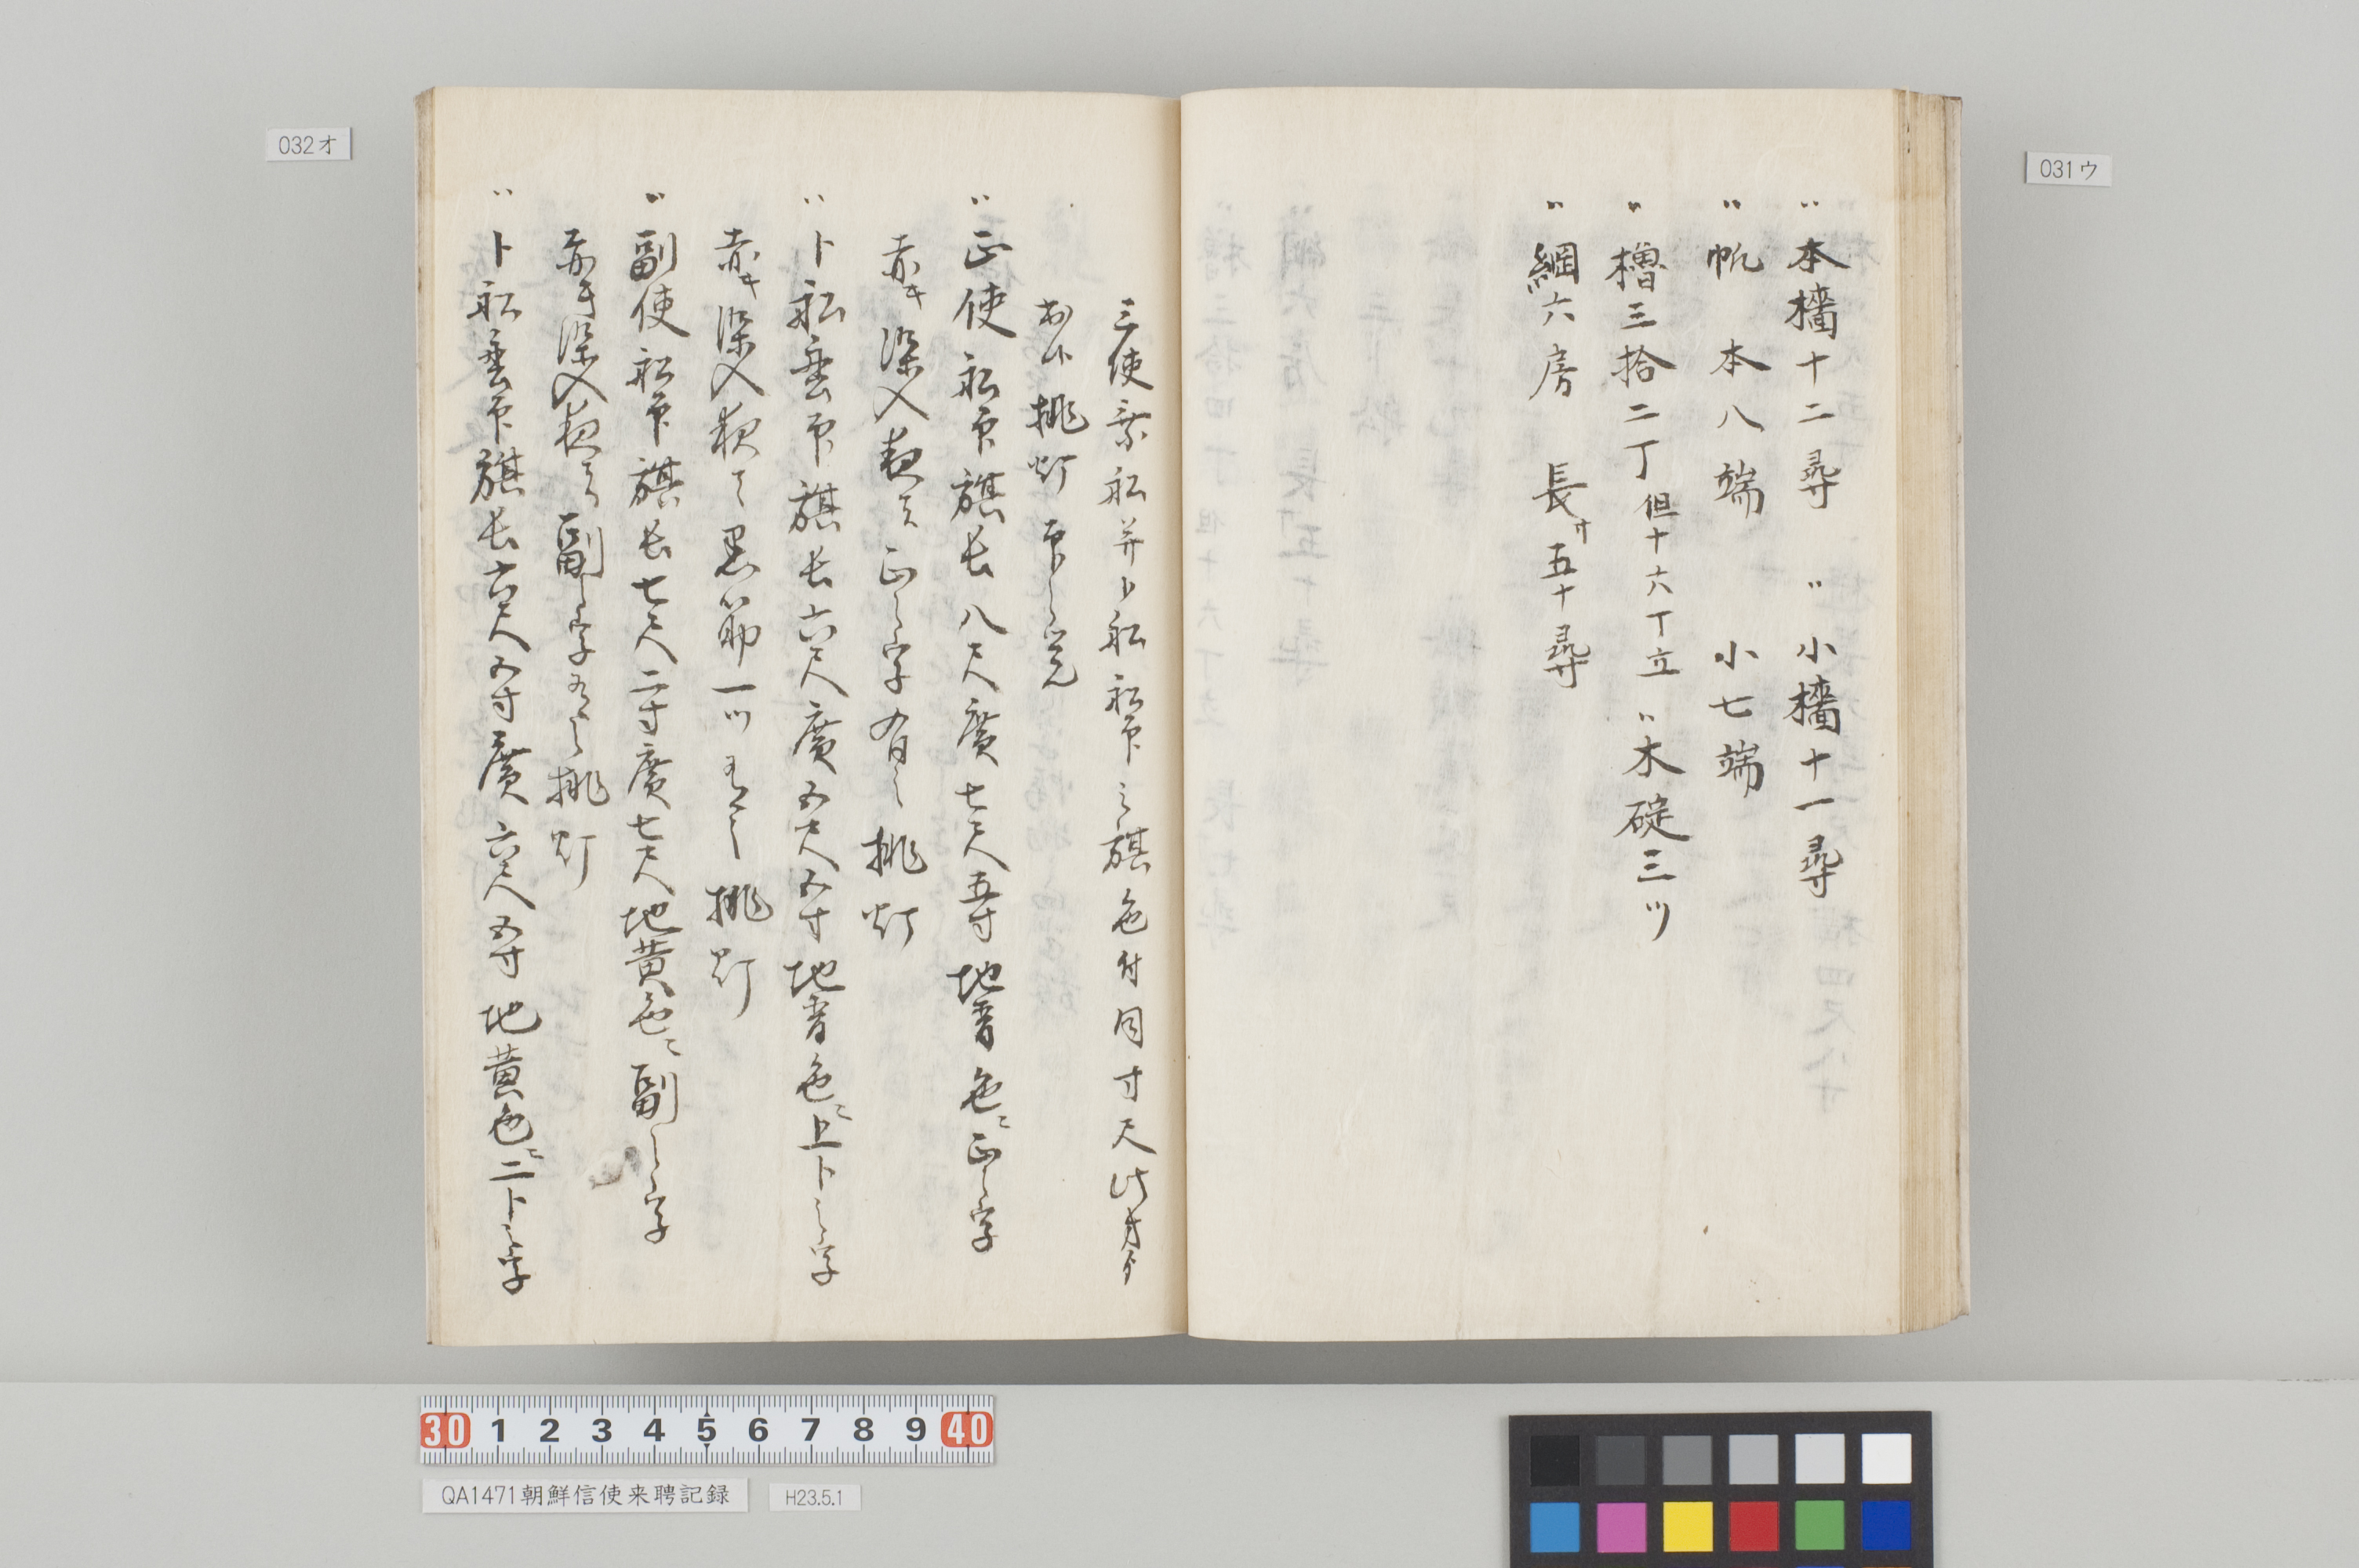 032オ
031ウ
〃本檣十二尋　〃小檣十一尋
〃帆　本八端　小七端
〃櫓三拾二丁 但十六丁立 〃木碇三ツ
〃綱六房　長サ五十尋
三使乗船并卜船船印之旗色付同寸尺此方ゟ
挑灯印之覚
〃正使船印旗長八尺廣七尺五寸地青色ニ正之字
赤キ染入夜ハ正之字有之挑灯
〃卜船印旗長六尺廣五尺五寸地青色ニ上卜之字
赤キ染入夜ハ黒筋一ツ有之挑灯
〃副使船印旗長七尺二寸廣七尺地黄色ニ副之字
赤キ染入夜ハ副之字有之挑灯
〃卜船印旗長六尺五寸廣六尺五寸地黄色ニ二卜之字
30 1 2 3 4 5 6 7 8 9 40
QA1471朝鮮信使来聘記録
H23.5.1